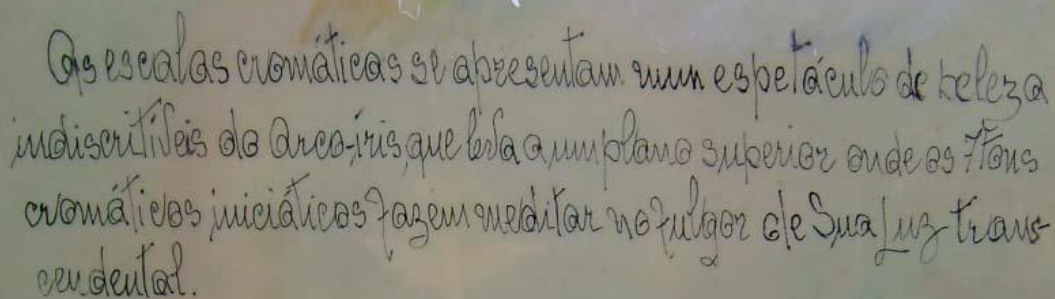 As escalas cromáticas se apresentam num espetáculo de beleza
indiscritíveis do arco-íris que leva a um plano superior onde os 7 tons
cromáticos iniciáticos fazem meditar no fulgor de Sua Luz trans-
cendental.